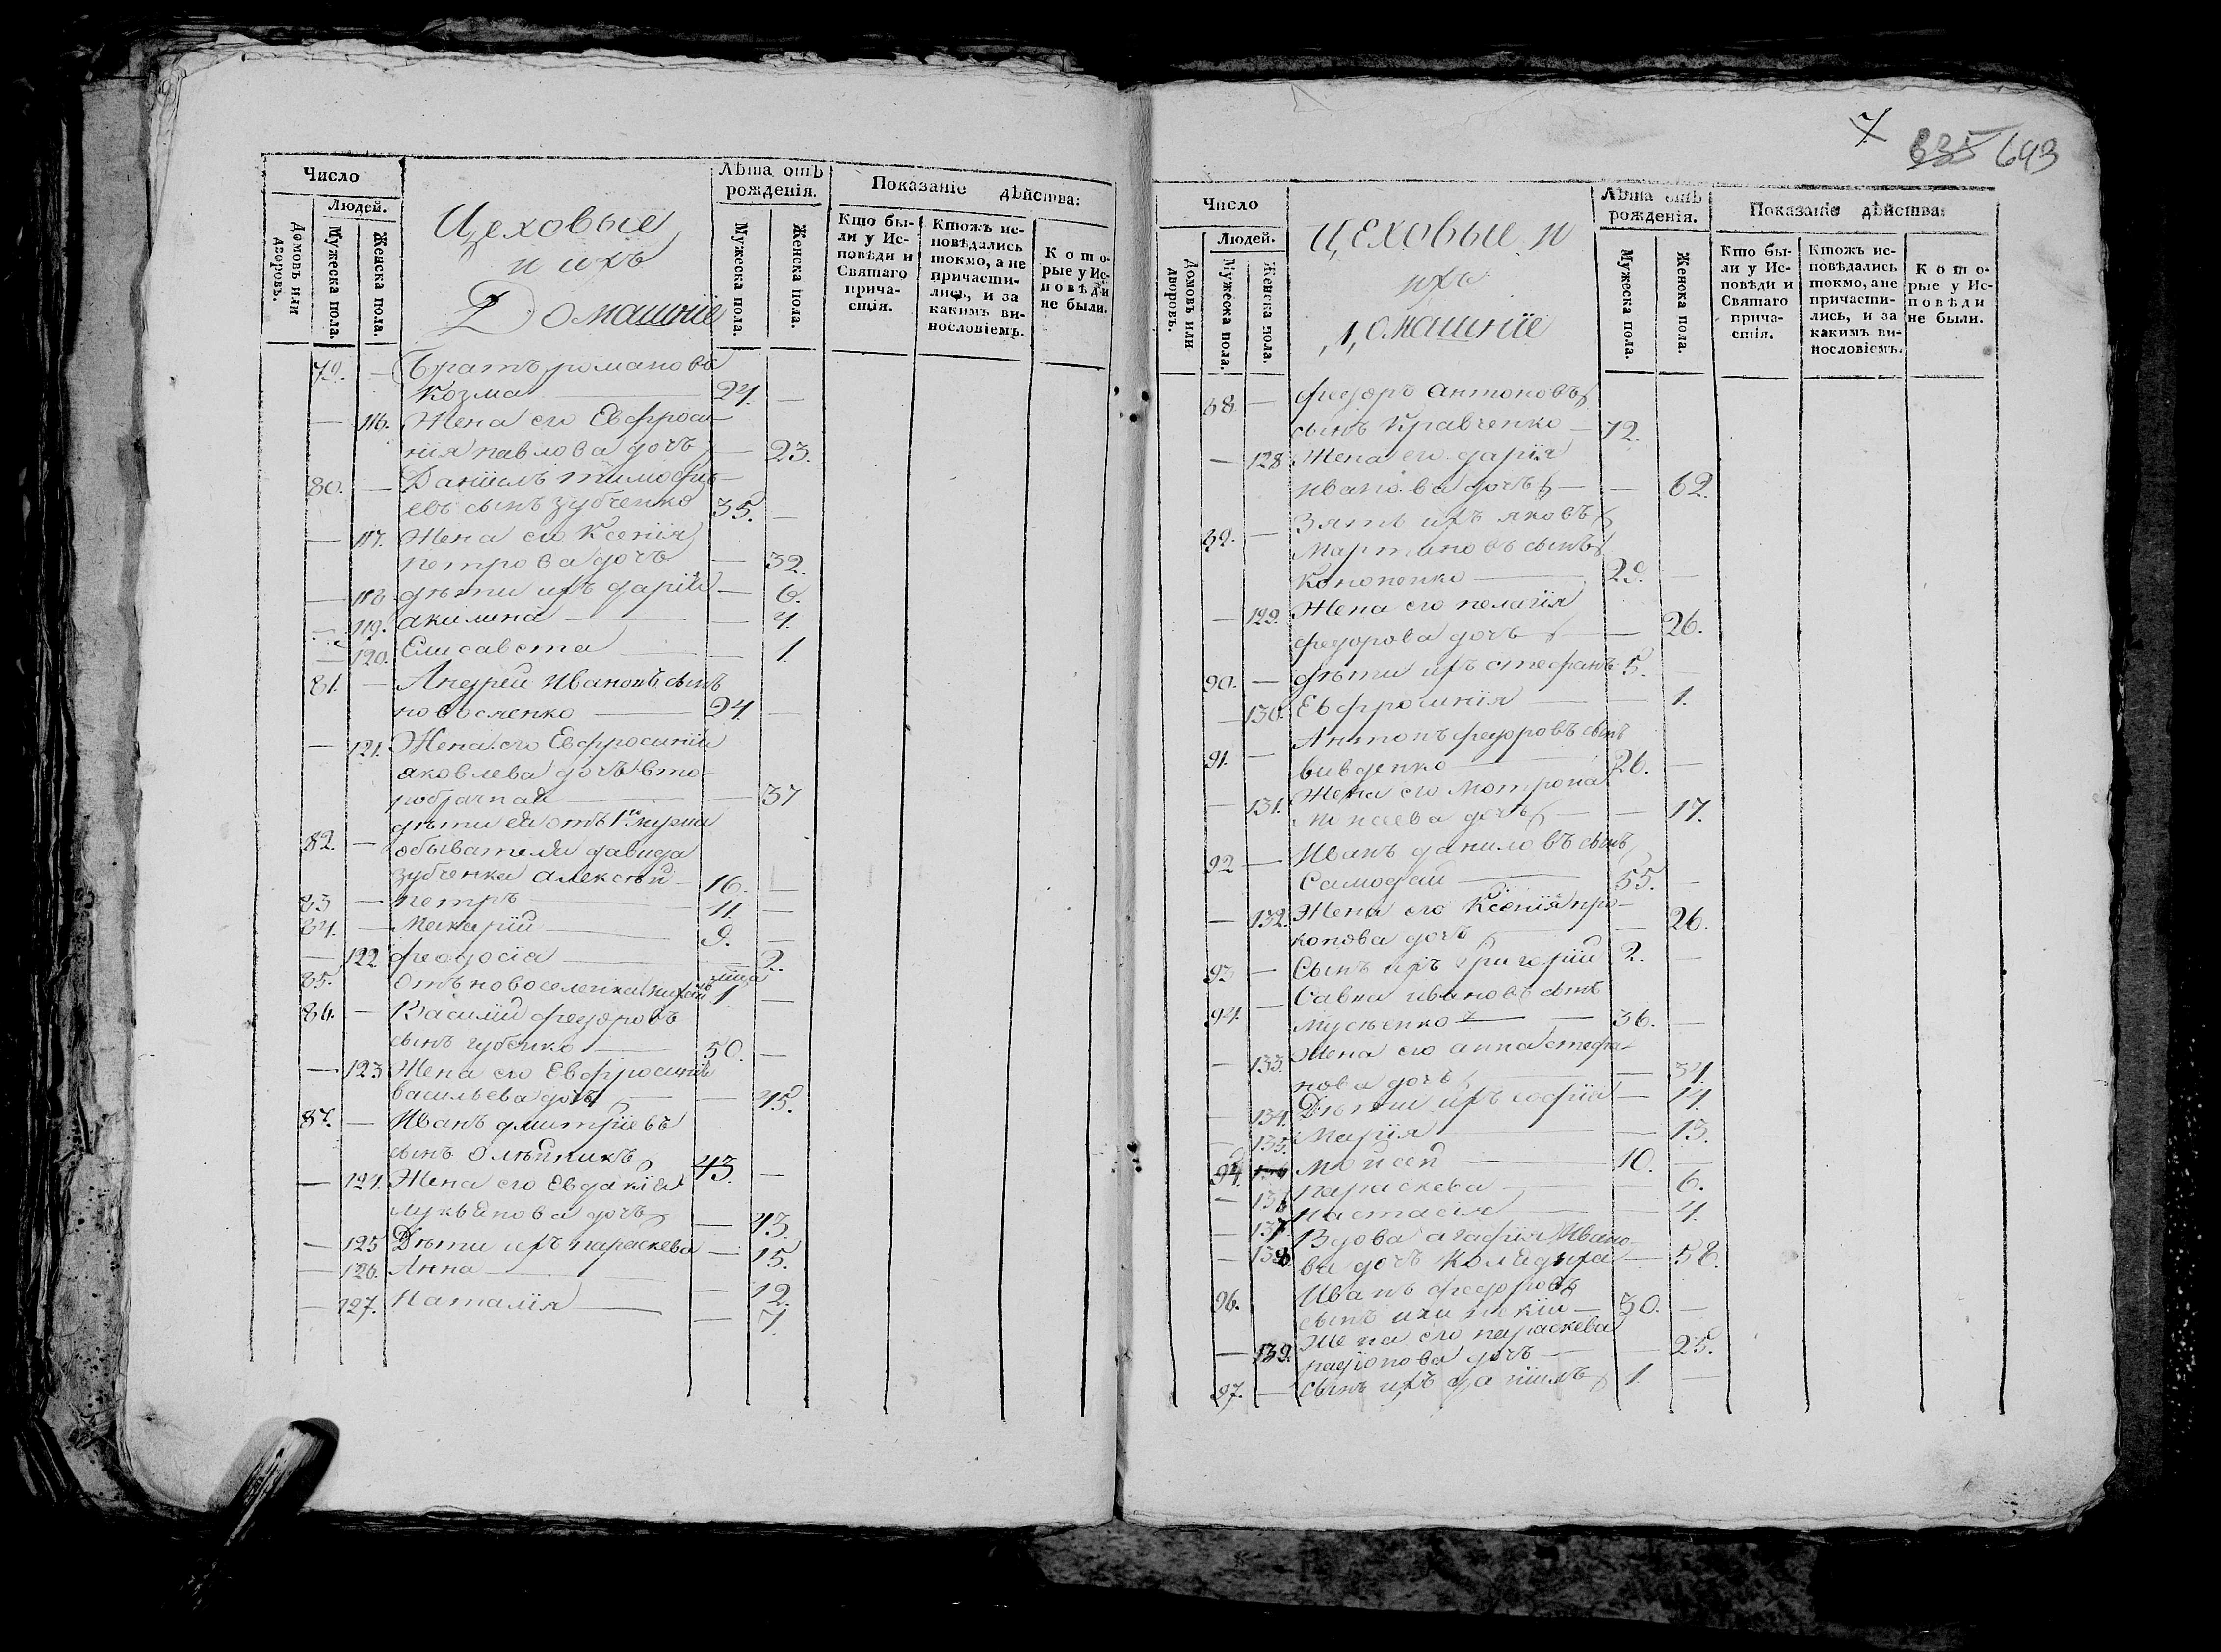 Число
Людей.
Домовъ или дворовъ.
Мужеска пола.
Женска пола.
Цеховые
и ихъ
Домашніе
Лѣта отъ рожденія.
Мужеска пола.
Женска пола.
Показаніе дѣйства:
Кто бы-
ли у Ис-
повѣди и
Святаго
прича-
стія.
Ктожъ ис-
повѣдались
токмо, а не
причасти-
лись, и за
какимъ ви-
нословіемъ.
Кото-
рые у Ис-
повѣди
не были.
79. — Братъ романовъ
Козма — 24. —
— 116. Жена его Евфроси-
нія павлова дочь — 23.
80. — Даніилъ тимофѣ-
евъ сынъ зубченко 35. —
— 117. Жена его Ксенія
петрова дочь — 32.
— 118 дѣти ихъ дарія — 6.
— 119. акилина — 4.
— 120. Елисавета — 1.
81. — Андрей Ивановъ сынъ
новоселенко — 24. —
— 121. Жена его Евфросинія
яковлева дочь вто-
робрачная — 37
дѣти ея отъ 1го мужа
82. — обывателя давида
зубченка алексѣй — 16. —
83 — петръ — 11. —
84. — Макарій — 9. —
— 122 феодосія — 2.
85. отъ новоселенка 1 —
86. — Василій федоровъ
сынъ губенко — 50. —
— 123 Жена его Евфросинія
васильева дочь — 45.
87. — Иванъ дмитріевъ
сынъ Олѣйникъ 43. —
— 124. Жена его Евдокія
лукьянова дочь — 43.
— 125 Дѣти ихъ параскева — 15.
— 126. Анна — 12.
— 127. Наталія — 7.
7.
635 643
Число
Людей.
Домовъ или дворовъ.
Мужеска пола.
Женска пола.
Цеховые и
ихъ
Домашніе
Лѣта отъ рожденія.
Мужеска пола.
Женска пола.
Показаніе дѣйства:
Кто бы-
ли у Ис-
повѣди и
Святаго
прича-
стія.
Ктожъ ис-
повѣдались
токмо, а не
причасти-
лись, и за
какимъ ви-
нословіемъ.
Кото-
рые у Ис-
повѣди
не были.
88. — федоръ антоновъ
сынъ Кравченко — 72.
— 128 Жена его дарія
иванова дочь — 62.
89. — Зять ихъ яковъ
Мартиновъ сынъ
Кононенко — 29. —
— 129. Жена его пелагія
федорова дочь — 26.
90. — дѣти ихъ стефанъ 5. —
— 130. Евфросинія — 1.
91. — Антонъ федоровъ сынъ
вивденко — 26. —
— 131. Жена его Мотрона
дочь — 17.
92 — Иванъ даниловъ сынъ
Самодай — 55. —
— 132. Жена его Ксенія про-
копова дочь — 26.
93 — Сынъ ихъ григорій 2. —
94. — Савва ивановъ сынъ
мусѣенко — 36. —
— 133. Жена его анна стефа-
нова дочь — 34.
— 134. Дѣти ихъ софія — 14.
— 135. Марія — 13.
94. Мойсей — 10. —
— 136 параскева — 6.
— 137 Настасія — 4.
— 138. Вдова агафія Ивано-
ва дочь — 58.
96. Иванъ федоровъ
сынъ — 30. —
— 139. Жена его параскева
радіонова дочь — 25.
97. — сынъ ихъ даніилъ 1. —